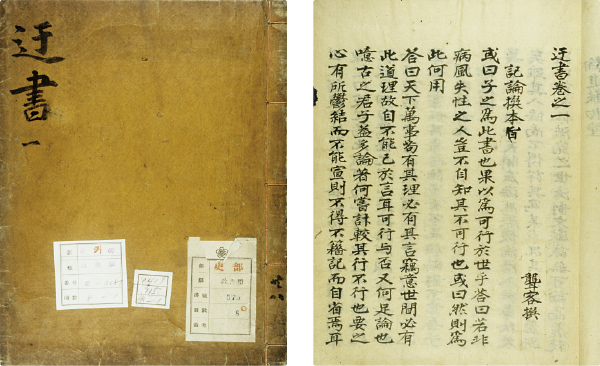 迂書
一
迂書卷之一
記論撰本旨
聾客撰
或曰子之爲此書也果以爲可行於世乎答曰若非
病風失性之人豈不自知其不可行也或曰然則爲
此何用
答曰天下萬事苟有其理必有其言竊意世間必有
此道理故自不能已於言耳可行與否又何足論也
噫古之君子蓋多論著何嘗計較其行不行也要之
心有所鬱結而不能宣則不得不籍記而自省焉耳